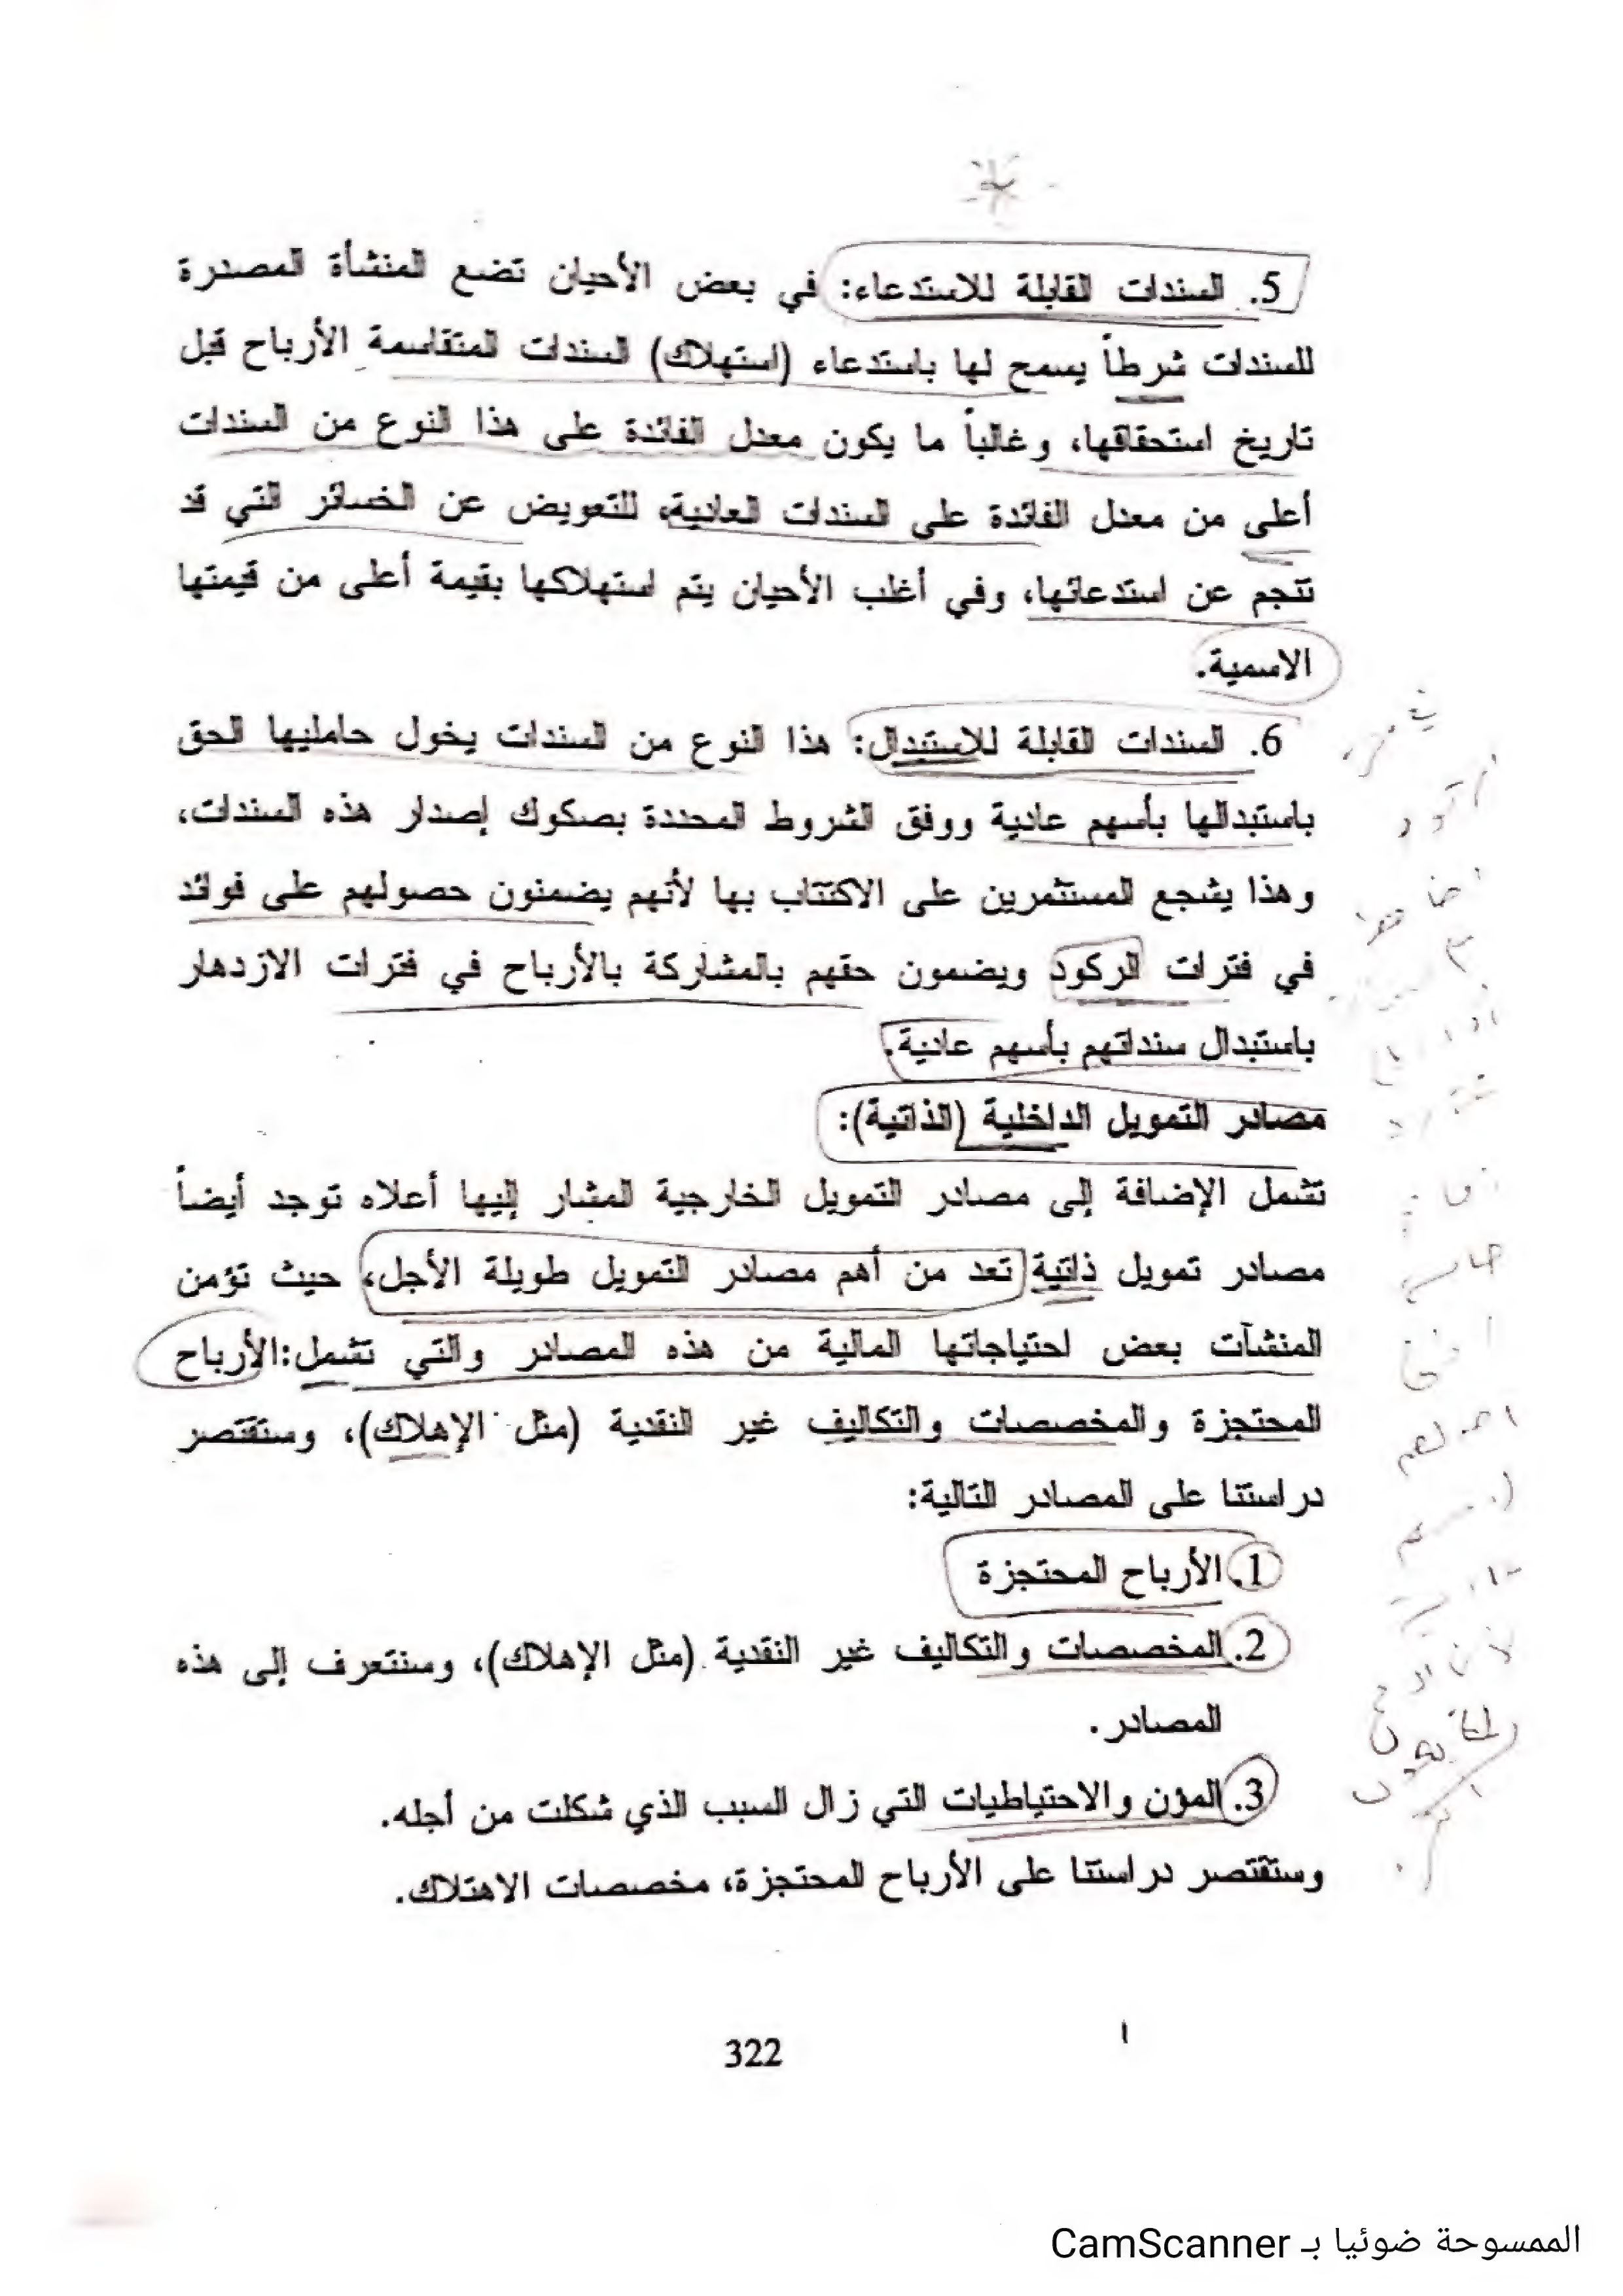 5. السندات القابلة للاستدعاء: في بعض الأحيان تضع المنشأة المصدرة
للسندات شرطاً يسمح لها باستدعاء (استهلاك) السندات المتقاسمة الأرباح قبل
تاريخ استحقاقها، وغالباً ما يكون معدل الفائدة على هذا النوع من السندات
أعلى من معدل الفائدة على السندات العادية، للتعويض عن الخسائر التي قد
تنجم عن استدعائها، وفي أغلب الأحيان يتم استهلاكها بقيمة أعلى من قيمتها
الاسمية.
6. السندات القابلة للاستبدال: هذا النوع من السندات يخول حامليها الحق
باستبدالها بأسهم عادية ووفق الشروط المحددة بصكوك إصدار هذه السندات،
وهذا يشجع المستثمرين على الاكتتاب بها لأنهم يضمنون حصولهم على فوائد
في فترات الركود ويضمون حقهم بالمشاركة بالأرباح في فترات الازدهار
باستبدال سنداتهم بأسهم عادية.
مصادر التمويل الداخلية (الذاتية):
تشمل الإضافة إلى مصادر التمويل الخارجية المشار إليها أعلاه توجد أيضاً
مصادر تمويل ذاتية تعد من أهم مصادر التمويل طويلة الأجل، حيث تؤمن
المنشآت بعض احتياجاتها المالية من هذه المصادر والتي تشمل:الأرباح
المحتجزة والمخصصات والتكاليف غير النقدية (مثل الإهلاك)، وستقتصر
دراستنا على المصادر التالية:
1. الأرباح المحتجزة
2. المخصصات والتكاليف غير النقدية (مثل الإهلاك)، وسنتعرف إلى هذه
المصادر.
3. المؤن والاحتياطيات التي زال السبب الذي شكلت من أجله.
وستقتصر دراستنا على الأرباح المحتجزة، مخصصات الاهتلاك.
322
الممسوحة ضوئيا بـ CamScanner